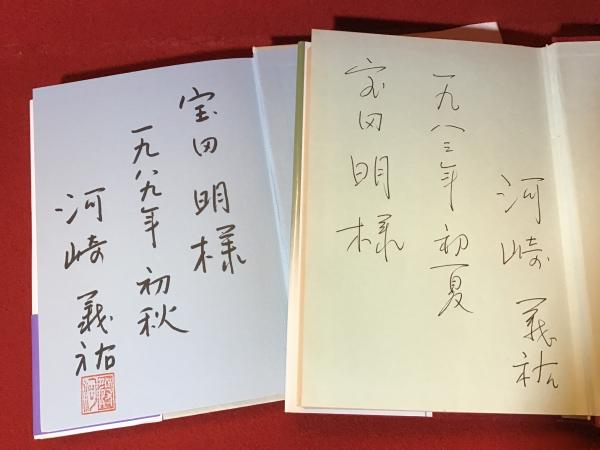 宝田明様
一九八九年 初秋
河崎義祐
宝田明様
一九八三年 初夏
河崎義祐